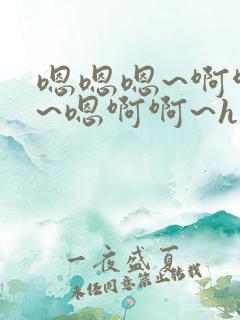 嗯嗯嗯~啊啊
~嗯啊啊~h
一夜盛夏
未经同意禁止转载